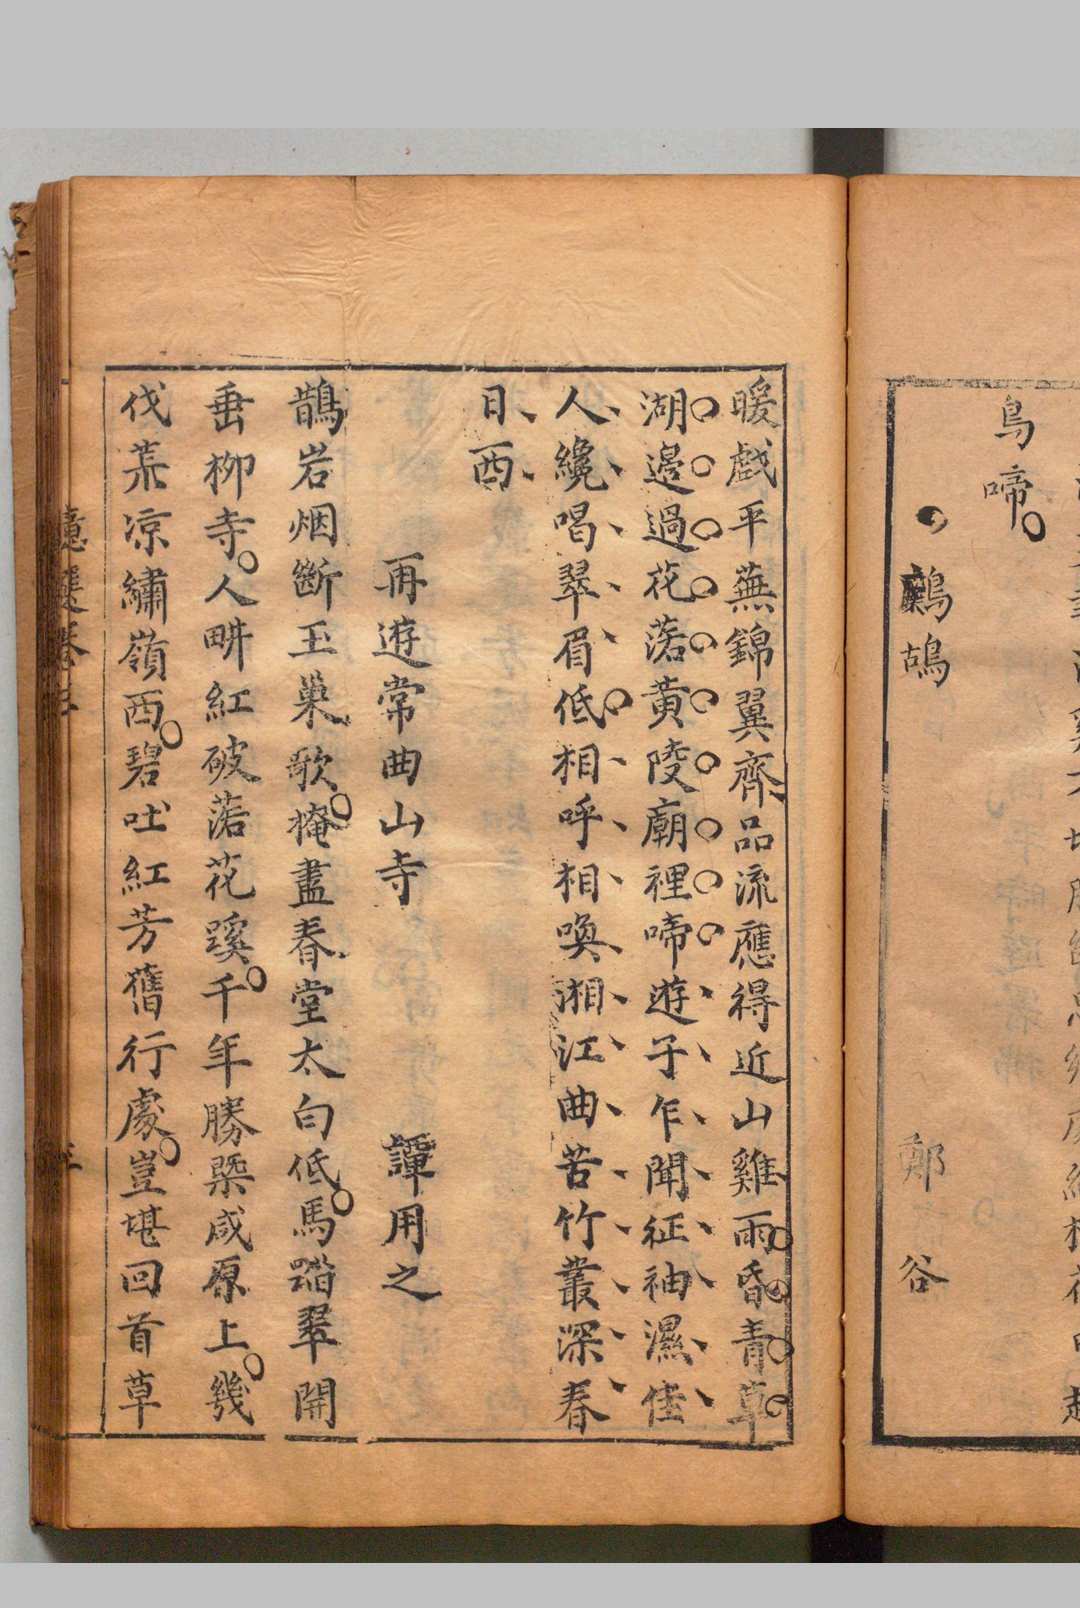 鳥啼
鷓鴣　鄭谷
暖戲平蕪錦翼齊品流應得近山雞雨昏青草
湖邊過花落黃陵廟裡啼遊子乍聞征袖濕佳
人纔唱翠眉低相呼相喚湘江曲苦竹叢深春
日西
再遊常曲山寺　譚用之
鵲岩烟斷玉巢歌掩盡春堂太白低馬踏翠開
垂柳寺人畊紅破落花蹊千年勝槩咸原上幾
伐荒凉繡嶺西碧吐紅芳舊行處豈堪回首草